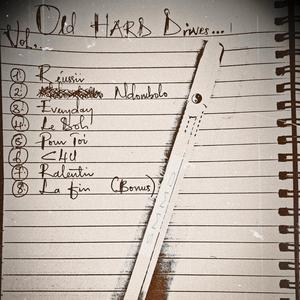 Old HARD Drives...!
Vol.
1. Réussir
2. Ndombolo
3. Everyday
4. Le Boh
5. Pour Toi
6. C4U
7. Ralentir
8. La fin (Bonus)